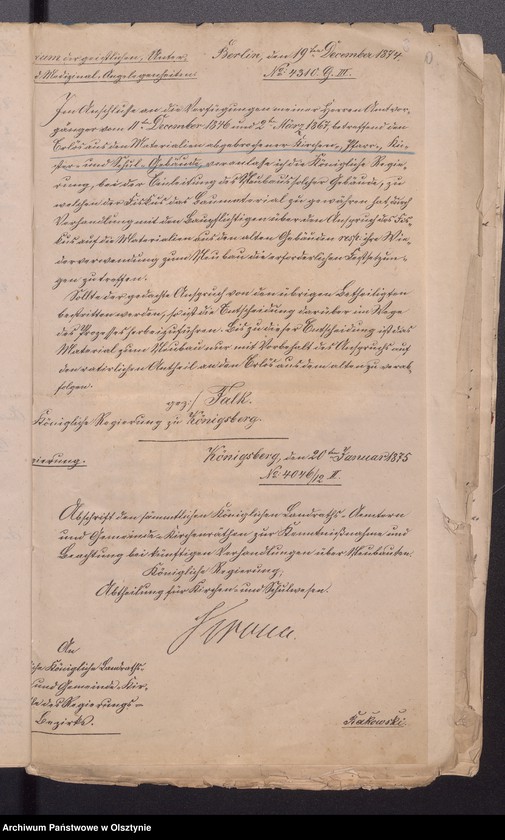 Berlin, den 19ten December 1874.
rium der geistlichen, Unter-
d. Medizinal-Angelegenheiten
No 4310. G. III.
Im Anschlusse an die Verfügungen meiner Herren Amtvor-
gänger vom 11ten December 1846 und 2ten März 1867, betreffend den
Erlös aus dem Materialien abgebrochener Kirchen-, Pfarr-, Kü-
ster- und Schul-Gebäude, veranlasse ich die Königliche Regie-
rung, bei der Einleitung des Neubaus solcher Gebäude, zu
welchen der Fiskus das Baumaterial zu gewähren hat, durch
Verhandlung mit den Baupflichtigen über den Anspruch des Fis-
kus auf die Materialien aus den alten Gebäuden resp: ihre Wie-
derverwendung zum Neubau die erforderlichen Festsetzun-
gen zu treffen.
Sollte der gedachte Anspruch von den übrigen Betheiligten
bestritten werden, so ist die Entscheidung darüber im Wege
des Prozesses herbeizuführen. Bis zu dieser Entscheidung ist das
Material zum Neubau nur mit Vorbehalt des Anspruchs auf
den natürlichen Antheil an den Erlös aus dem alten zu verab-
folgen.
gez:/ Falk.
Königliche Regierung zu Königsberg.
gierung.
Königsberg, den 20ten Januar 1875
No 4046/12 II.
Abschrift den sämmtlichen Königlichen Landraths-Aemtern
und Gemeinde-Kirchenräthen zur Kenntnißnahme und
Beachtung bei künftigen Verhandlungen über Neubauten.
Königliche Regierung,
Abtheilung für Kirchen- und Schulwesen.
An
liche Königliche Landraths-
und Gemeinde-Kir-
the des Regierungs-
Bezirks.
Rakowski
Archiwum Państwowe w Olsztynie